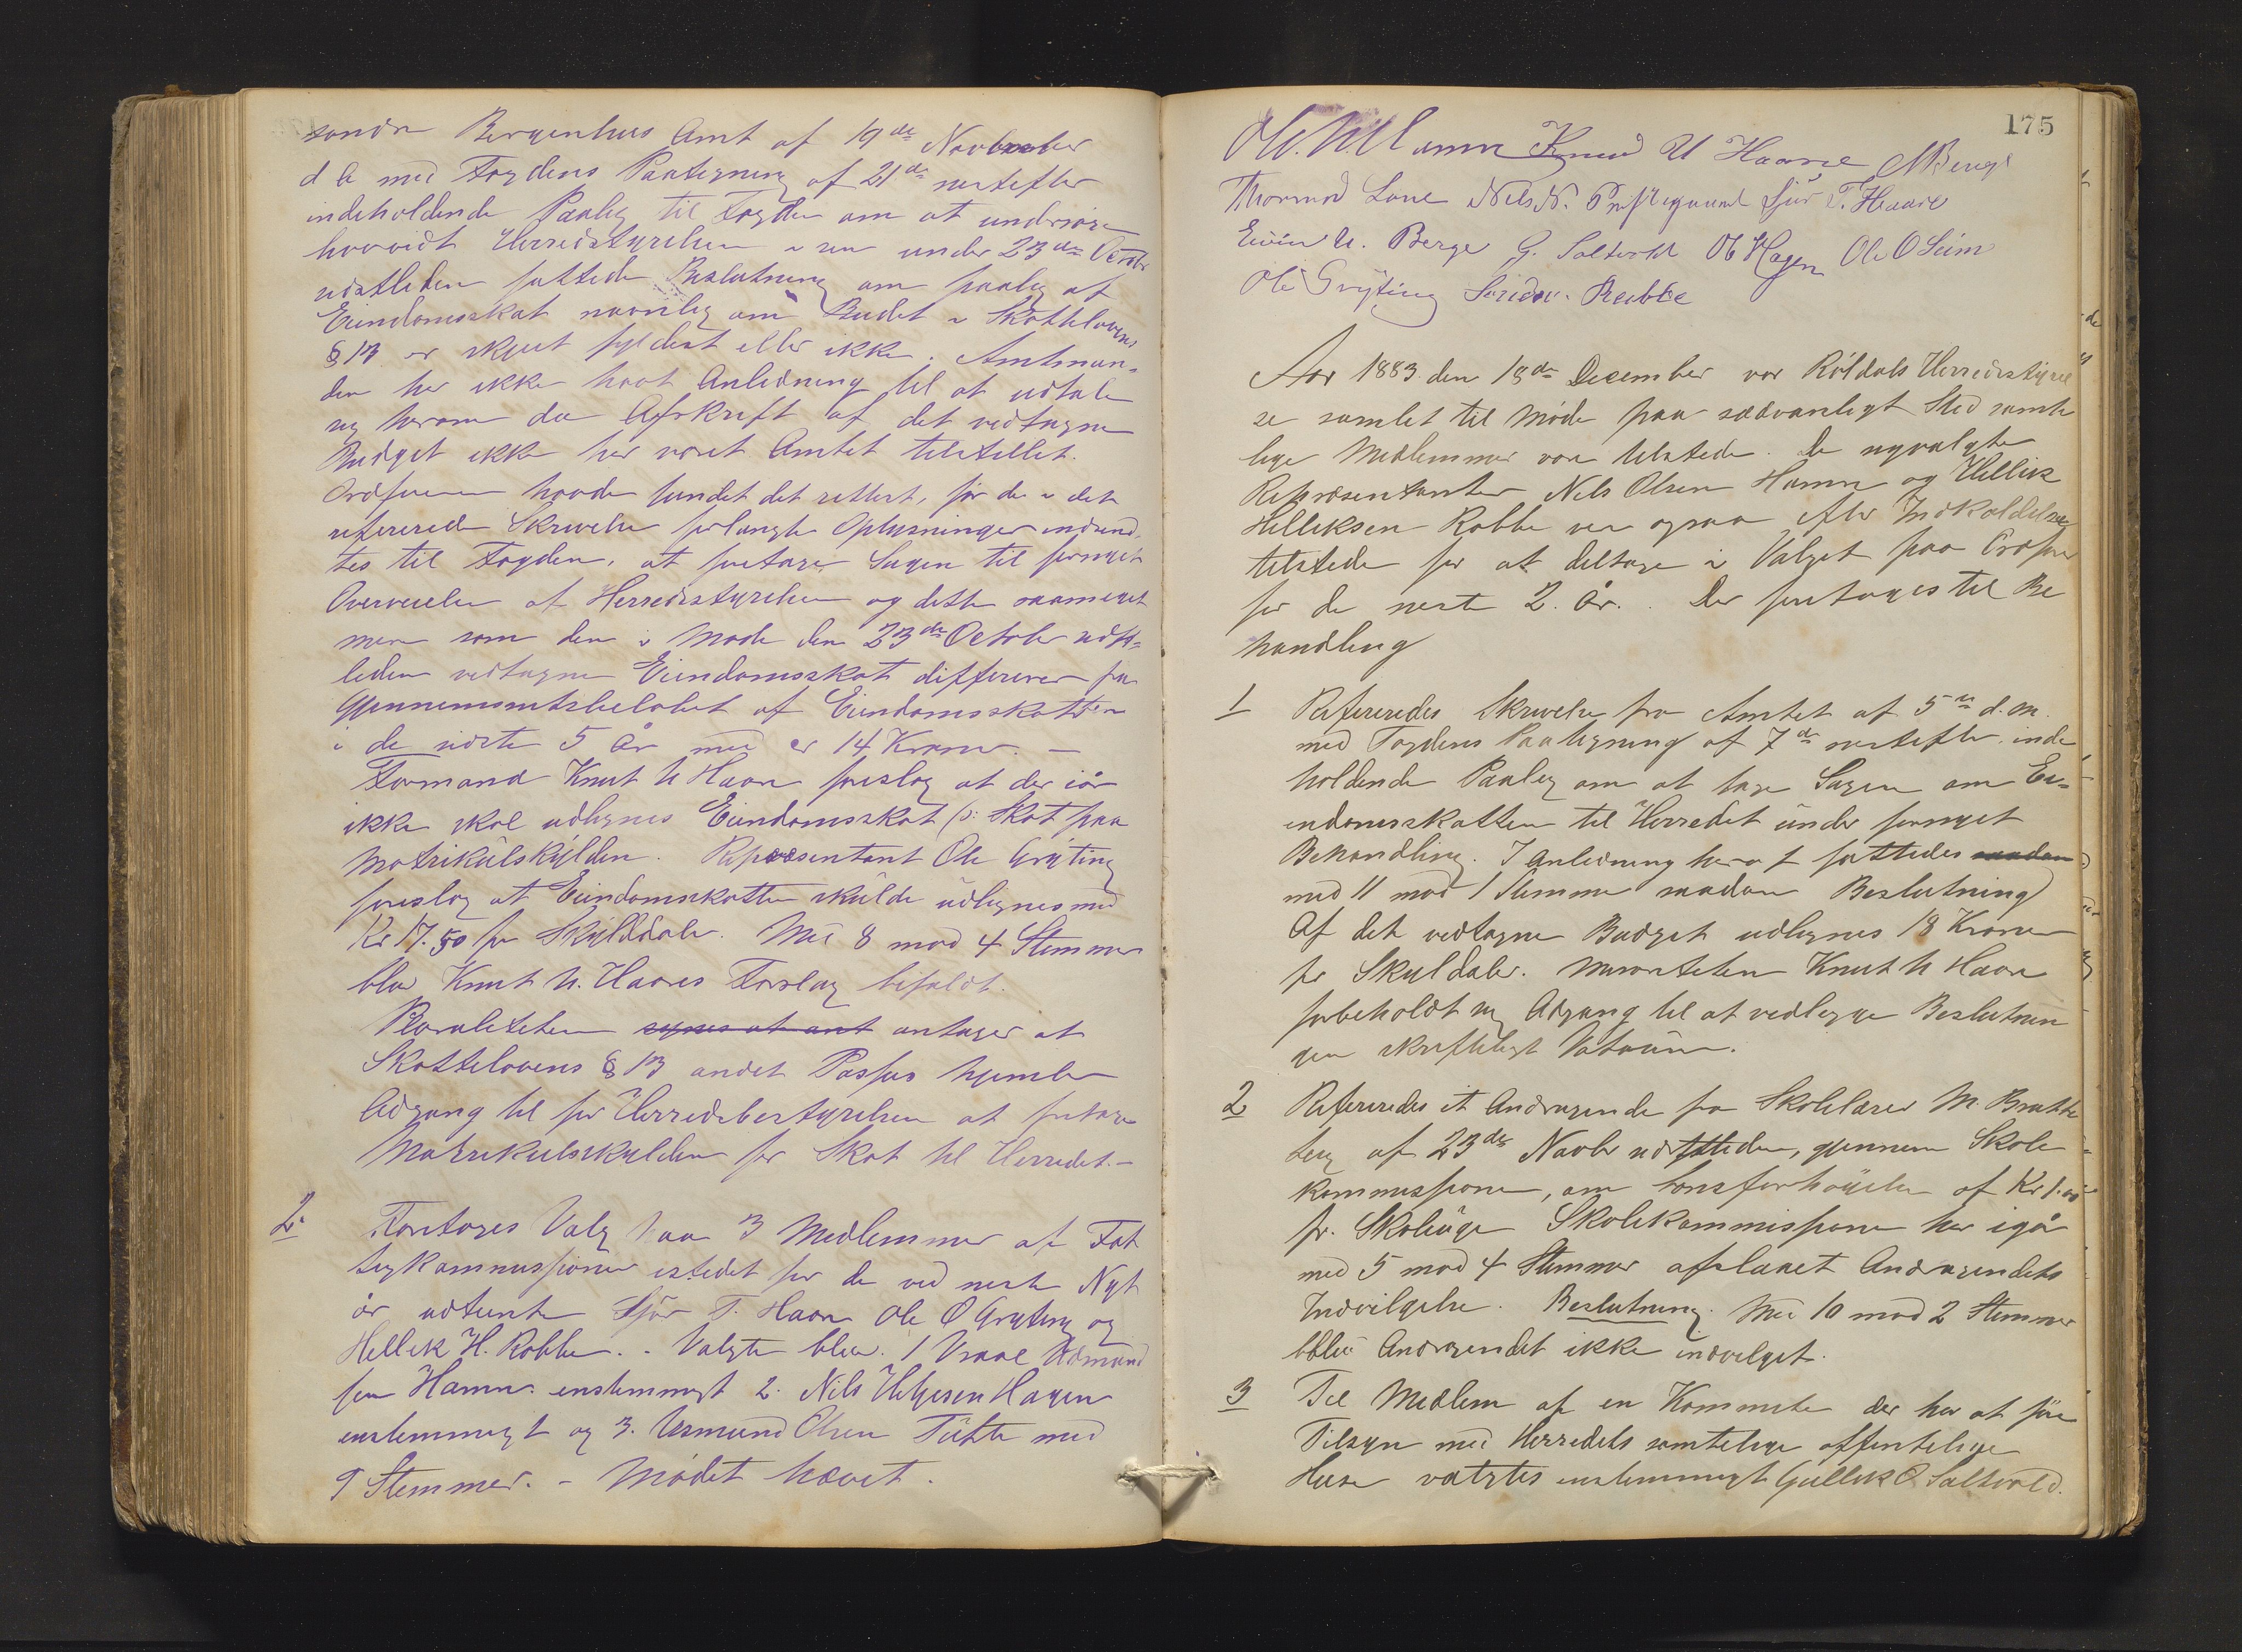 søndre Bergenhus Amt af 19de November
d A med Fogdens Paategning af 21de næstefter
indeholdende Paalæg til Fogden om at undersøge
hvorvidt Herredstyrelsen i sin under 23de Octobr
sidstleden fattede Beslutning om paalæg af
Eiendomsskat navnlig om Budet i Skattelovens
§ 13 er skjeet fyldest eller ikke. Amtman-
den har ikke havt Anledning til at udtale
sig herom da Afskrift af det vedtagne
Budget ikke har været Amtet tilstillet.
Ordføreren havde fundet det rettest, før de i det
refererede Skrivelse forlangte Oplysninger indsend-
tes til Fogden, at foretage Sagen til fornyet
Overveielse af Herredstyrelsen og dette saameget
mere som den i Møde den 23de October sidst-
leden vedtagne Eiendomsskat differerer fra
Gjennemsnitsbeløbet af Eiendomsskatten
i de sidste 5 År med er 14 Kroner. —
Formand Knut U Haare foreslog at der iår
ikke skal udlignes Eiendomsskat (: Skat paa
Matrikulskylden. Repræsentant Ole Gryting
foreslog at Eiendomsskatten skulde udlignes med
Kr 17.50 pr Skylddaler. Med 8 mod 4 Stemmer
blev Knut U. Haares Forslag bifaldt.
Pluraliteten synes at ant antager at
Skattelovens § 13 andet Passus hjemler
Adgang til for Herredsbestyrelsen at fritage
Matrikulskylden for Skat til Herredet. —
2. Foretoges Valg paa 3 Medlemmer af Fat
tigkommissionen istedet for de ved neste Nyt
år udtrædte Sjur T. Haare Ole O Gryting og
Hellek H. Rabbe. - Valgte blev. 1 Vraal Asmund
sen Hamre enstemmigt 2. Nils Helgesen Hagen
enstemmigt og 3. Asmund Olsen Tufte med
9 Stemmer. - Mødet hævet.
175
Ole N. Hamre Knud U Haare Berge
Thormod Lone Nils N. Prestegaard Sjur T. Haare
Eivin A. Berge G. Saltvold O H Hagen Ole O Seim
Ole Gryting Rabbe
Aar 1883 den 18de December var Røldals Herredsstyrel
se samlet til Møde paa sædvanligt Sted samte
lige Medlemmer var tilstede. De nyvalgte
Repræsentanter Nils Olsen Hamre og Hellik
Helleksen Rabbe var ogsaa efter Indkaldelse
tilstede for at deltage i Valget paa Ordfører
for de neste 2 År. Der foretoges til Be
handling
1 Refereredes Skrivelse fra Amtet af 5te d.M.
med Fogdens Paategning af 7de næstefter inde
holdende Paalæg om at tage Sagen om Ei-
endomsskatten til Herredet under fornyet
Behandling. I Anledning heraf fattedes saadan
med 11 mod 1 Stemme saadan Beslutning
Af det vedtagne Budget udlignes 18 Kroner
pr Skyldaler. Minoriteten Knut U Haare
forbeholdt sig Adgang til at vedlegge Beslutnin
gen skriftligt Votum.
2 Refereredes et Andragende fra Skolelærer M. Bratte
teig af 23de Novbr sidstleden, gjennem Skole
kommissionen, om Lønsforhøielse af Kr 1.00
pr. Skoleuge Skolekommissionen har igår
med 5 mod 4 Stemmer afslaaet Andragendets
Indvilgelse. Beslutning. Med 10 mod 2 Stemmer
blev Andragendet ikke indvilget.
3 Til Medlem af en Kommite der har at føre
Tilsyn med Herredets samtelige offentelige
Huse valgtes enstemmigt Gullek O. Saltvold.